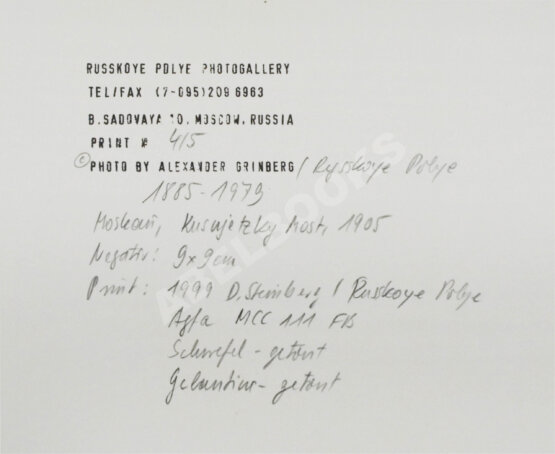 RUSSKOYE POLYE PHOTOGALLERY
TEL/FAX (7-095)209 6963
B.SADOVAYA 10, MOSCOW, RUSSIA
PRINT № 4/5
© PHOTO BY ALEXANDER GRINBERG / Russkoye Polye
1885-1979
Moskau, Kusnjetzky Most, 1905
Negativ: 9x9cm
Print: 1999 D.Steinberg / Russkoye Polye
Agfa MCC 111 FB
Schwefel-getönt
getönt